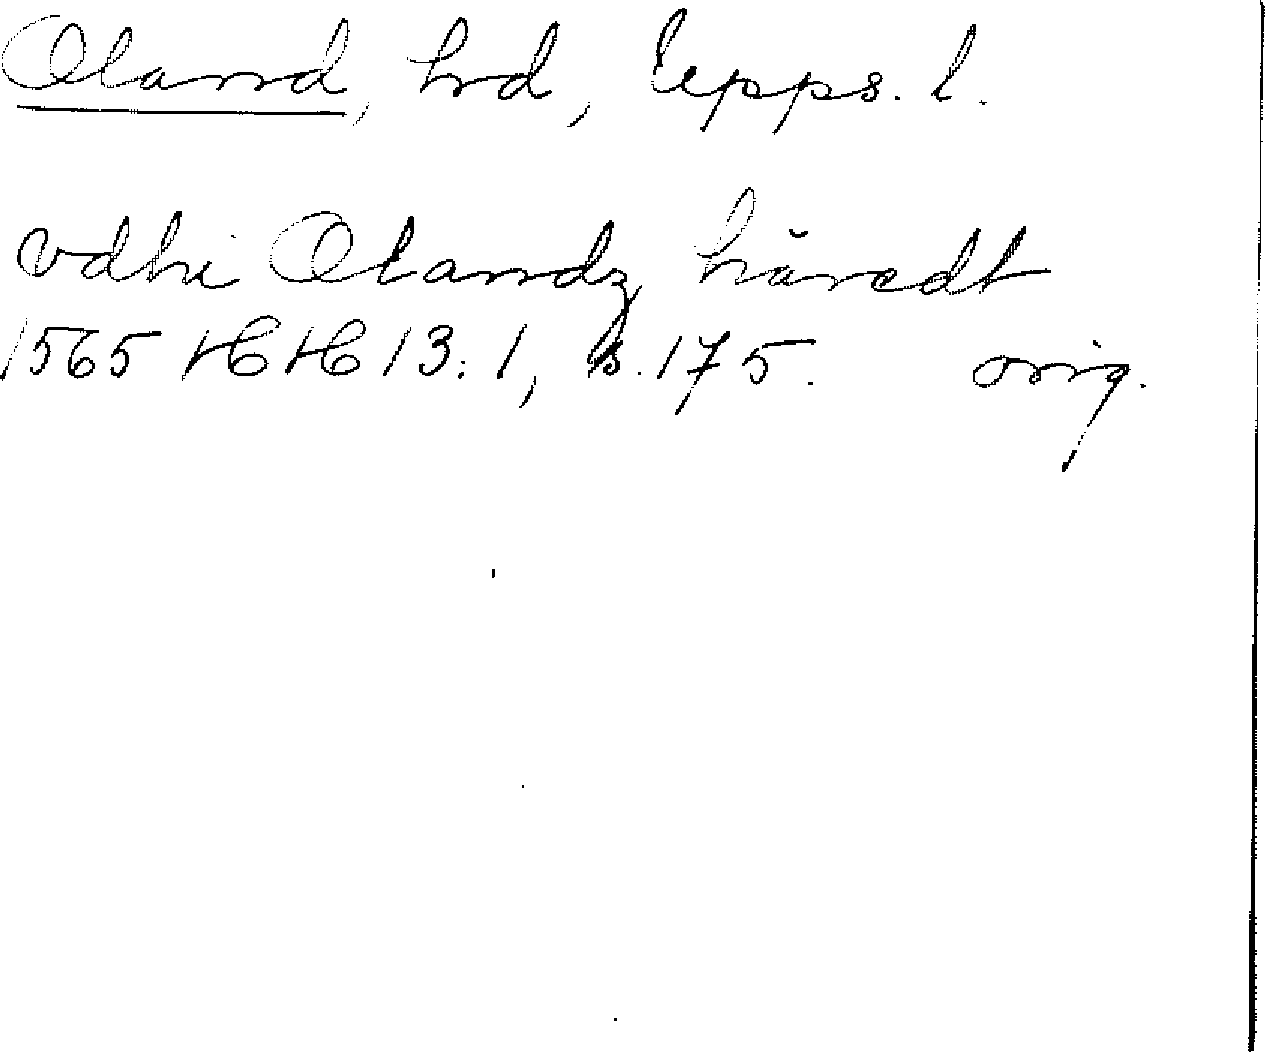 Oland, hrd, Upps. l.
vdhi Olandz håredt
1565 HH 13:1, s. 175. orig.